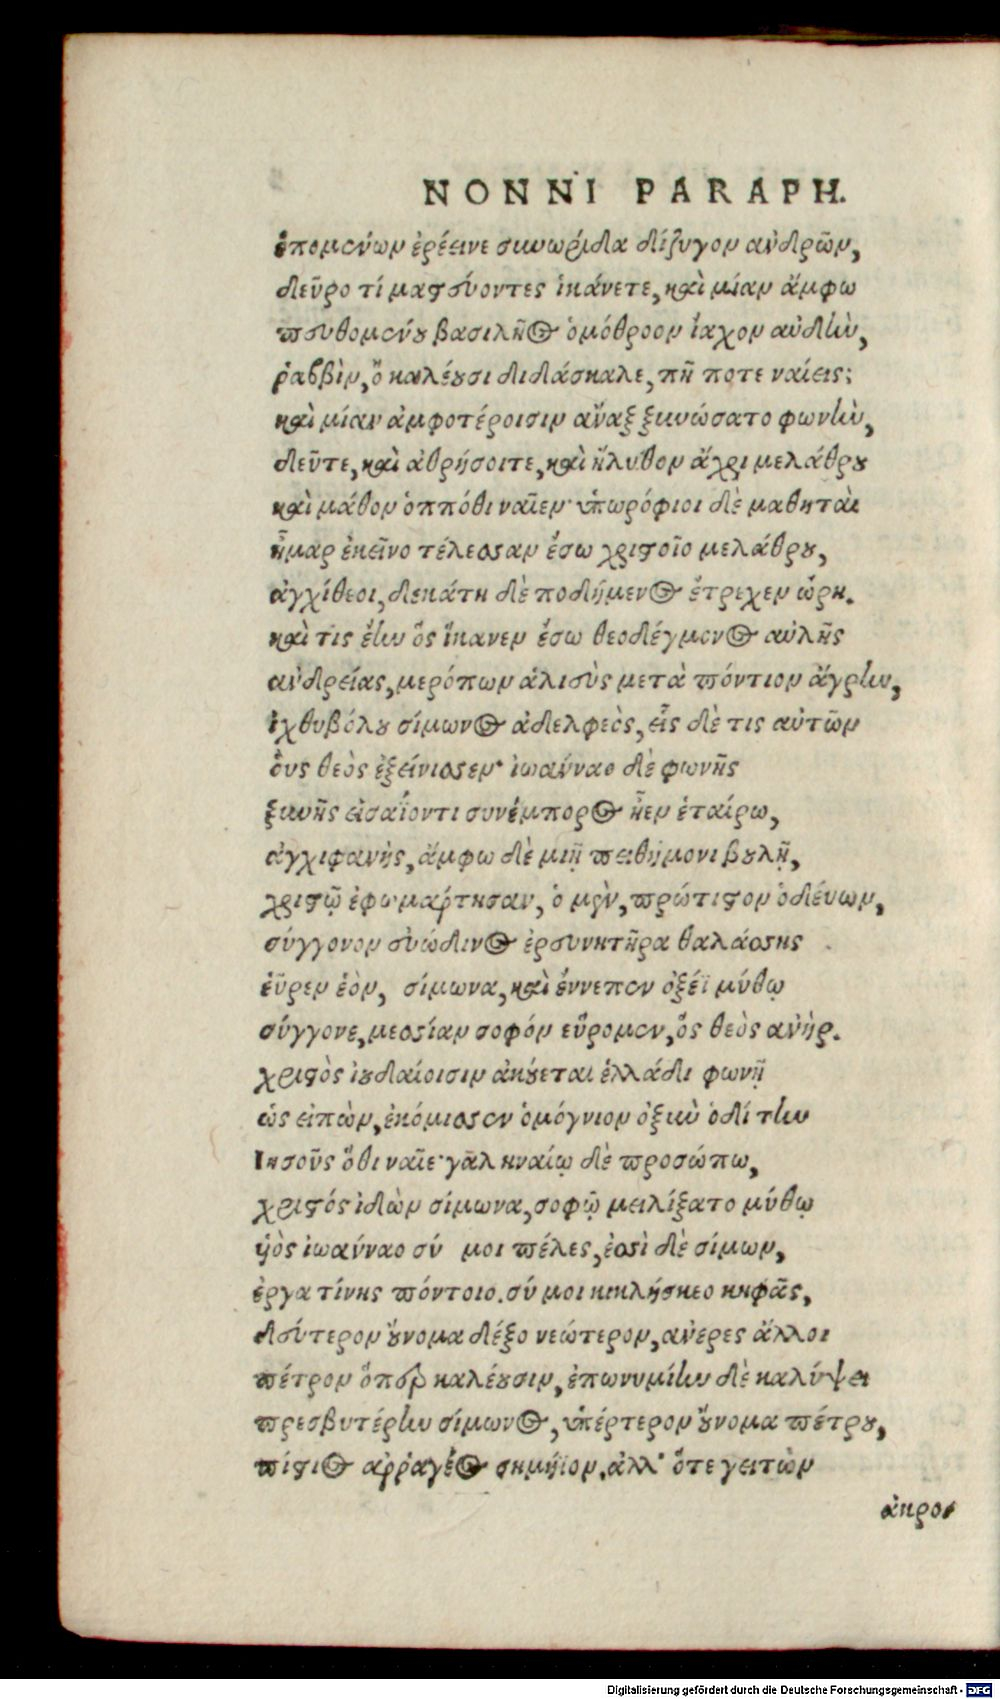 NONNI PARAPH.
ἑπομένων ἐρέεινε συνωρίδα δίζυγον ἀνδρῶν,
δεῦρο τί μαστεύοντες ἱκάνετε, καὶ μίαν ἄμφω
πευθομένου βασιλῆος ὁμόθροον ἴαχον αὐδὴν,
ῥαββὶν, ὃ καλέουσι διδάσκαλε, πῆ ποτε ναίεις;
καὶ μίαν ἀμφοτέροισιν ἄναξ ξυνώσατο φωνὴν,
δεῦτε, καὶ ἀθρήσοιτε, καὶ ἤλυθον ἄχρι μελάθρου
καὶ μάθον ὁππόθι ναῖεν· ὑπωρόφιοι δὲ μαθηταὶ
ἦμαρ ἐκεῖνο τέλεσσαν ἔσω χριστοῖο μελάθρου,
ἀγχίθεοι, δεκάτη δὲ ποδήμενος ἔτρεχεν ὥρη.
καὶ τὶς ἔην ὃς ἵκανεν ἔσω θεοδέγμενος αὐλῆς
ἀνδρείας, μερόπων ἁλιεὺς μετὰ πόντιον ἄγρην,
ἰχθυβόλου σίμωνος ἀδελφεὸς, εἷς δὲ τις αὐτῶν
οὓς θεὸς ἐξείνισσεν· ἰωάνναο δὲ φωνῆς
ξυνῆς εἰσαΐοντι συνέμπορος ἦεν ἑταίρω,
ἀγχιφανὴς, ἄμφω δὲ μιῇ πειθήμονι βουλῇ,
χριστῷ ἐφωμάρτησαν, ὁ μὲν, πρώτιστον ὁδεύων,
σύγγονον εὐώδινος ἐρευνητῆρα θαλάσσης
εὗρεν ἑὸν, σίμωνα, καὶ ἔννεπεν ὀξέϊ μύθῳ
σύγγονε, μεσσίαν σοφόν εὕρομεν, ὃς θεὸς ἀνὴρ.
χριστὸς ἰουδαίοισιν ἀκούεται ἑλλάδι φωνῇ
ὡς εἰπὼν, ἐκόμισσεν ὁμόγνιον ὀξὺν ὁδίτην
Ιησοῦς ὅθι ναῖε· γαληναίῳ δὲ προσώπω,
χριστός ἰδὼν σίμωνα, σοφῷ μειλίξατο μύθῳ
ὑὸς ἰωάνναο σύ μοι πέλες, ἐσσὶ δὲ σίμων,
ἐργατίνης πόντοιο. σύ μοι κικλήσκεο κηφᾶς,
δεύτερον οὔνομα δέξο νεώτερον, ἀνέρες ἄλλοι
πέτρον ὅπερ καλέουσιν, ἐπωνυμίην δὲ καλύψει
πρεσβυτέρην σίμωνος, ὑπέρτερον οὔνομα πέτρου,
πίστιος ἀρραγέος σημήϊον. ἀλλ' ὅτε γειτὼν
ἀκροσ
Digitalisierung gefördert durch die Deutsche Forschungsgemeinschaft - DFG